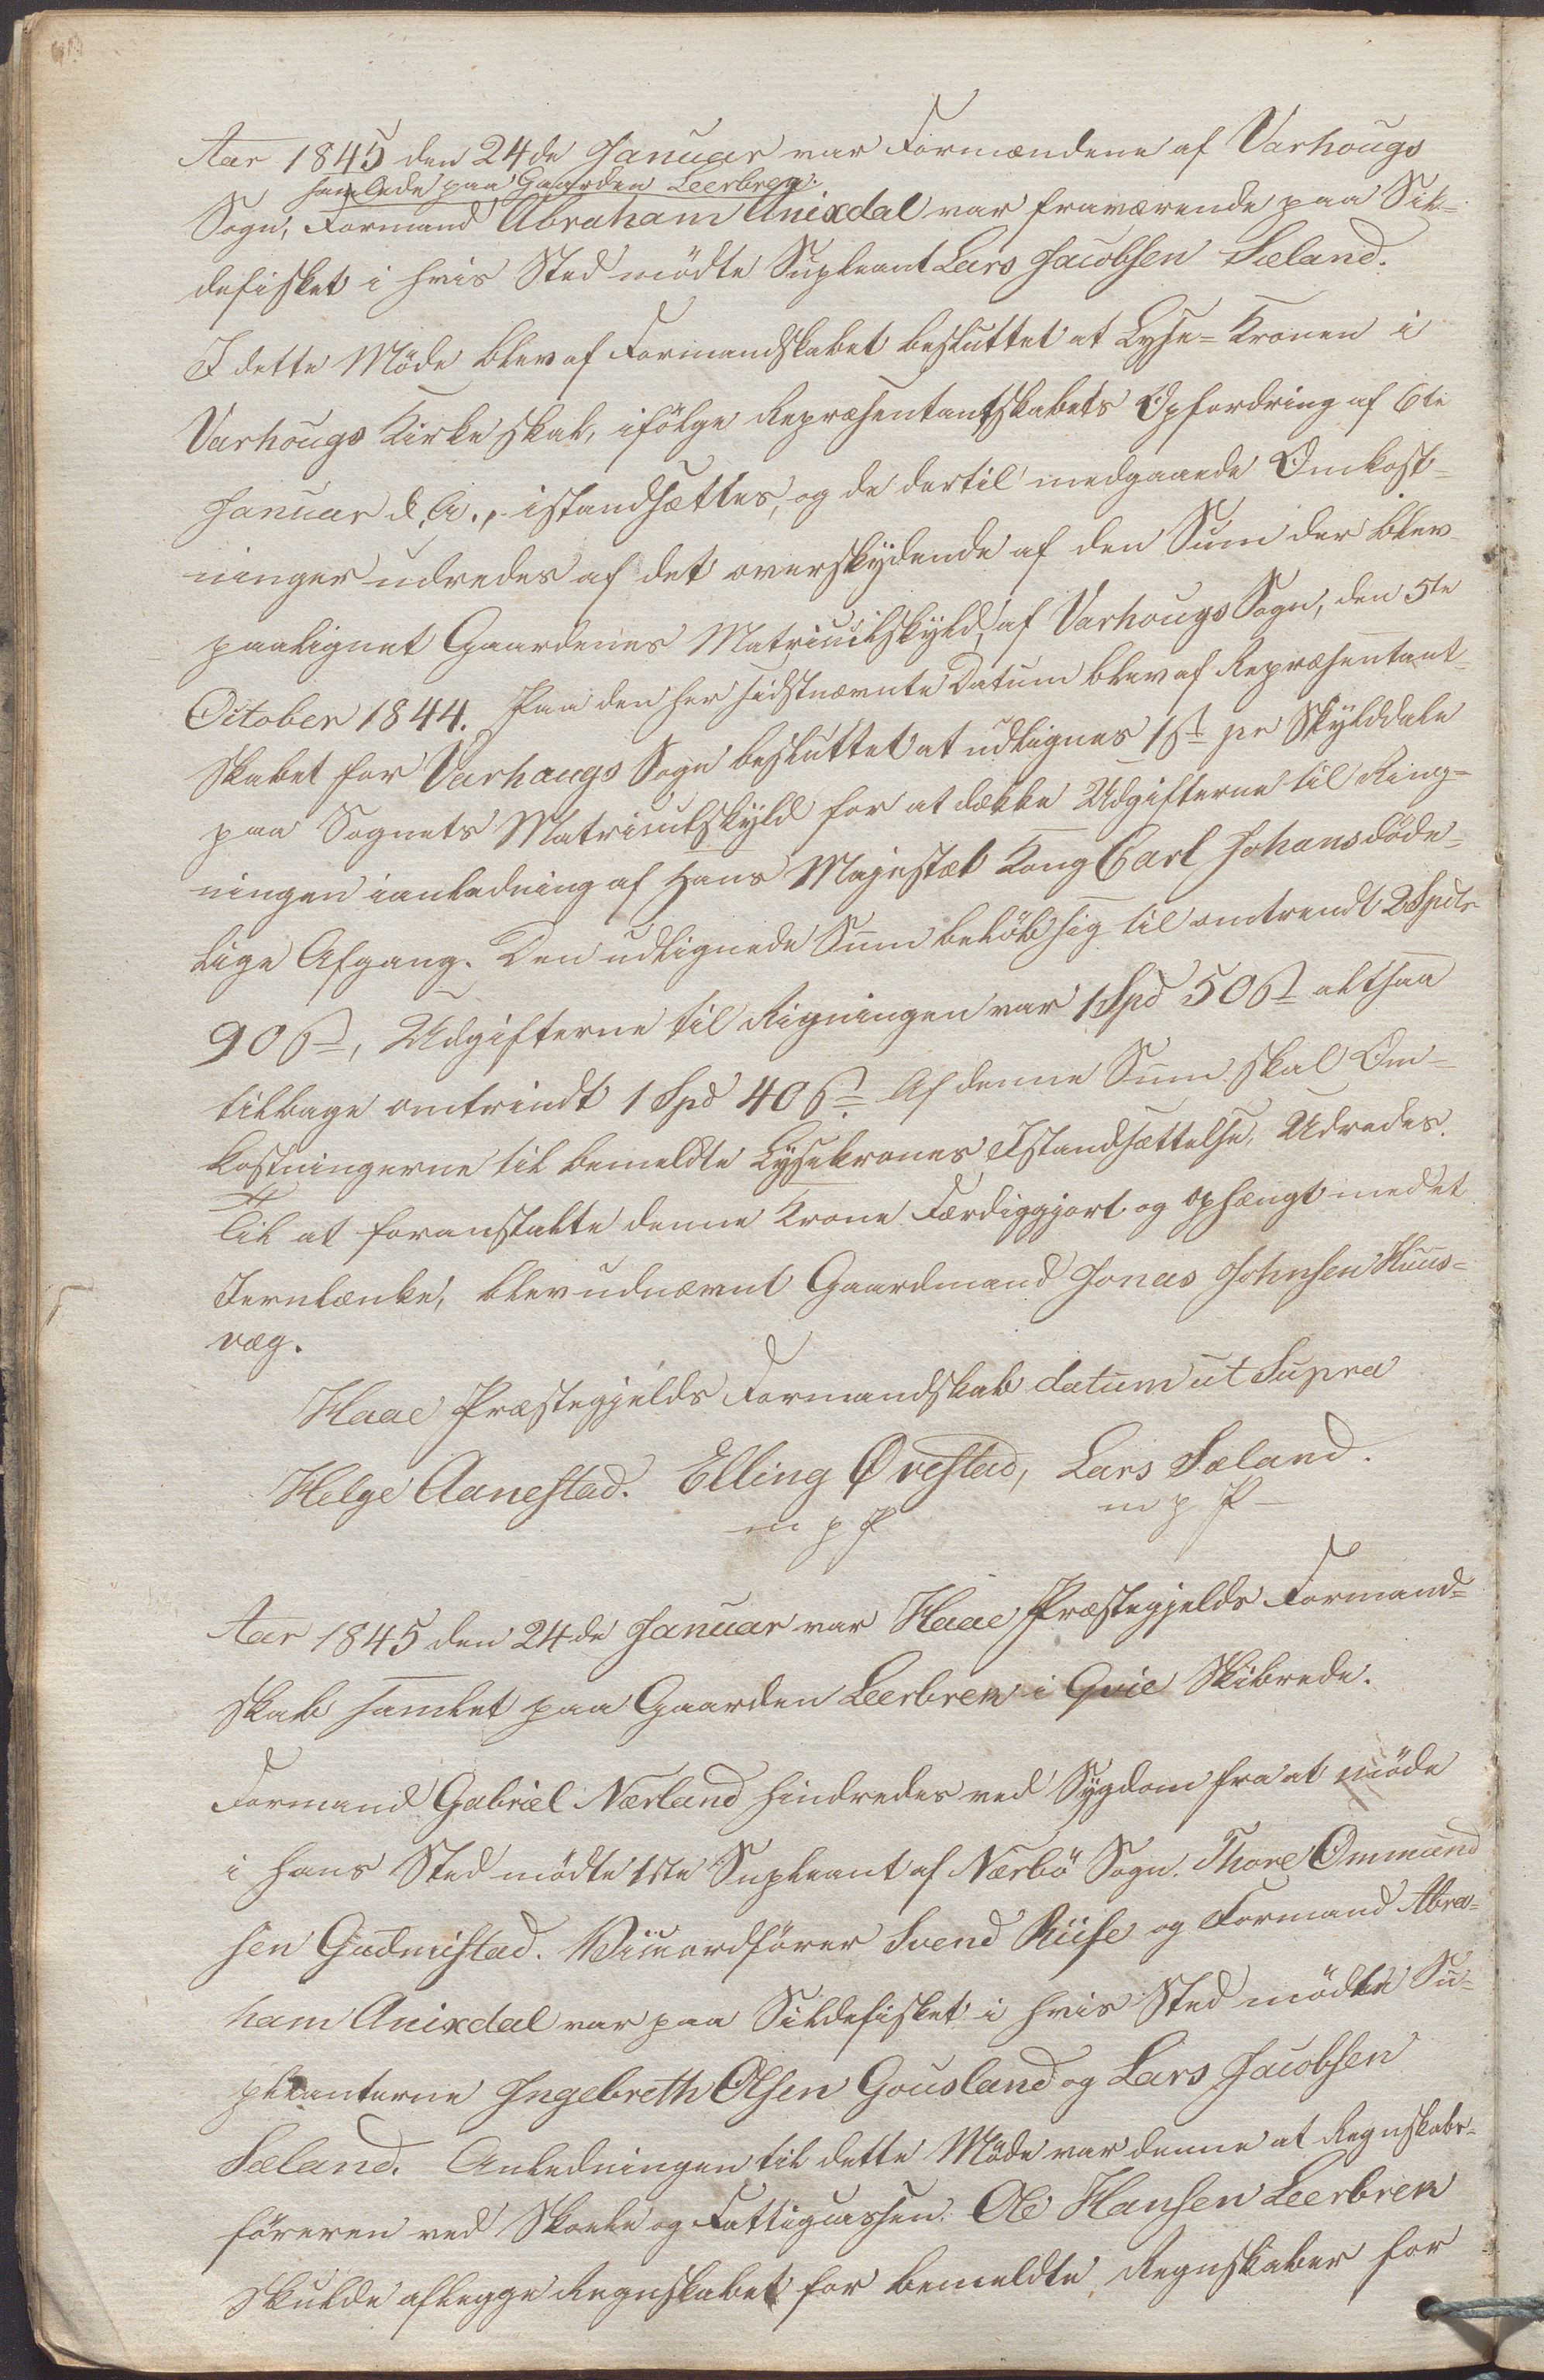 Aar 1845 den 24de Januar var Formændene af Varhougs
samlede paa Gaarden Leerbrek.
Sogn, Formand Abraham Anixdal var fraværende paa Sil=
defisket i hvis Sted mödte Supleant Lars Jacobsen Sæland.
I dette Möde blev af Formandskabet besluttet at Lyse=Kronen i
Varhougs Kirke skal, ifölge Repræsentantskabets Opfordring af 6te
Januar d. A., istandsættes, og de dertil medgaaede Omkost=
ninger udredes af det overskydende af den Sum der blev
paalignet Gaardenes Matriculskyld, af Varhougs Sogn, den 5te
October 1844. Paa den her sidstnævnte Datum blev af Repræsentant-
skabet for Varhaugs Sogn besluttet at udlignes 1 ß pr Skylddale
paa Sognets Matriculskyld for at dække Udgifterne til Ring=
ningen ianledning af Hans Majestæt Kong Carl Johans döde=
lige Afgang. Den udlignede Sum belöb sig til omtrendt 2 Spdlr
90 ß, Udgifterne til Rigningen var 1 Spd 50 ß altsaa
tilbage omtrindt 1 Spd 40 ß. Af denne Sum skal Om=
kostningerne til bemeldte Lysekrones Istandsættelse, Udredes.
Til at foranstalte denne Krone Færdiggjort og ophængt med et
Jernlænke, blev udnævnt Gaardmand Jonas Johnsen Huus=
væg.
Haae Præstegjelds Formandskab datum ut Supra
Helge Aanestad. Elling Ørestad, Lars Sæland.
m p P m p P
Aar 1845 den 24de Januar var Haae Præstegjelds Formand=
skab samlet paa Gaarden Leerbrek i Qvie Skibrede.
Formand Gabriel Nærland hindredes ved Sygdom fra at möde
i hans Sted mödte 1ste Supleant af Nærbö Sogn. Thore Ommund
sen Gudmistad. Viceordförer Svend Riise og Formand Abra=
ham Anixdal var paa Sildefisket i hvis Sted mödte Su=
pleanterne Ingebreth Olsen Gousland og Lars Jacobsen
Sæland. Anledningen til dette Möde var denne at Regnskabs-
föreren ved Skole og Fattigcassen. Ole Hansen Leerbrek
skulde aflegge Regnskabet for bemeldte Regnskaber for